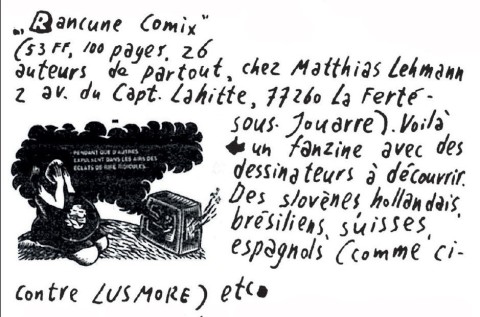 „Rancune Comix"
(53 FF, 100 pages, 26
auteurs de partout, chez Matthias Lehmann
2 av. du Capt. Lahitte, 77260 La Ferté-
sous-Jouarre). Voilà
un fanzine avec des
dessinateurs à découvrir.
Des slovènes, hollandais,
brésiliens, suisses,
espagnols (comme ci-
contre LUSMORE) etc.
PENDANT QUE D'AUTRES
EXPULSENT DANS LES AIRS DES
ÉCLATS DE RIRE RIDICULES...